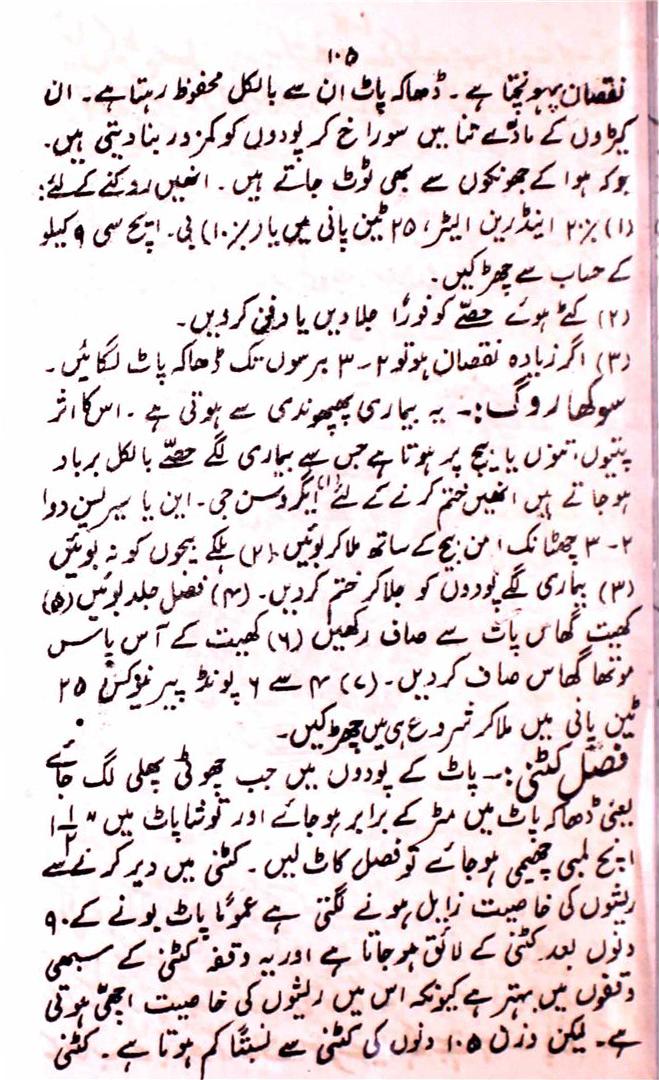 ۱۰۵
نقصان پہونچتا ہے۔ ڈھاکہ پاٹ ان سے بالکل محفوظ رہتا ہے۔ ان
کیڑوں کے مادّے تنا میں سوراخ کر پودوں کو کمزور بنا دیتی ہیں۔
جو کہ ہوا کے جھونکوں سے بھی ٹوٹ جاتے ہیں۔ انھیں روکنے کے لئے:
(۱) ۲۰٪ اینڈرین الیٹر، ۲۵ ٹین پانی میں یا (۱۰٪) بی۔ ایچ سی ۹ کیلو
کے حساب سے چھڑکیں۔
(۲) کٹے ہوئے حصّے کو فوراً جلا دیں یا دفن کر دیں۔
(۳) اگر زیادہ نقصان ہو تو ۲-۳ برسوں تک ڈھاکہ پاٹ لگائیں۔
سوکھا روگ:۔ یہ بیماری پھپھوندی سے ہوتی ہے۔ اس کا اثر
پتیوں، تنوں یا بیج پر ہوتا ہے جس سے بیماری لگے حصّے بالکل برباد
ہو جاتے ہیں انھیں ختم کرنے کے لئے (۱) ایگروسن جی۔ این یا سیرلین دوا
۲-۳ چھٹانک ۱ من بیج کے ساتھ ملا کر بوئیں۔ (۲) ہلکے بیجوں کو نہ بوئیں
(۳) بیماری لگے پودوں کو جلا کر ختم کر دیں۔ (۴) فصل جلد بوئیں (۵)
کھیت گھاس پات سے صاف رکھیں (۶) کھیت کے آس پاس
موتھا گھاس صاف کر دیں۔ (۷) ۴ سے ۶ پونڈ پیرینوکس ۲۵
ٹین پانی میں ملا کر شروع ہی میں چھڑکیں۔
فصل کٹنی:۔ پاٹ کے پودوں میں جب چھوٹی پھلی لگ جائے
یعنی ڈھاکہ پاٹ میں مٹر کے برابر ہو جائے اور توشا پاٹ میں " ۱ ۱/۲
انچ لمبی چھیمی ہو جائے تو فصل کاٹ لیں۔ کٹنی میں دیر کرنے سے
ریشوں کی خاصیت زایل ہونے لگتی ہے عموماً پاٹ بونے کے ۹۰
دنوں بعد کٹنی کے لائق ہو جاتا ہے اور یہ وقفہ کٹنی کے سبھی
وقفوں میں بہتر ہے کیونکہ اس میں ریشوں کی خاصیت اچھی ہوتی
ہے۔ لیکن وزن ۱۰۵ دنوں کی کٹنی سے نسبتاً کم ہوتا ہے۔ کٹنی